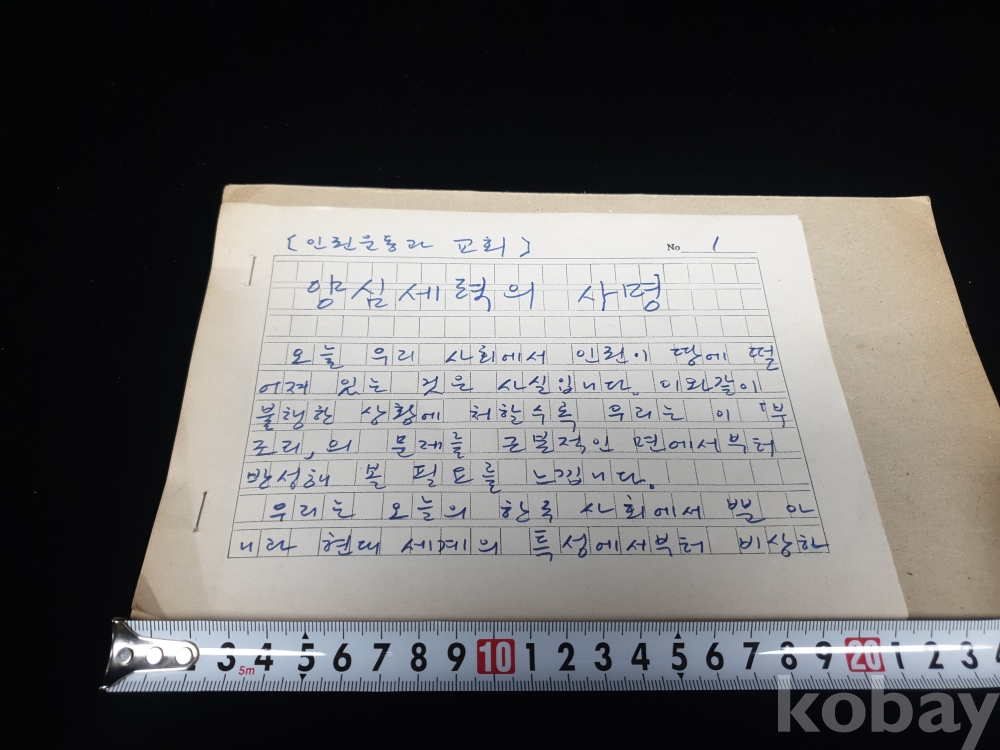 [인권운동과 교회]
No 1
양심세력의 사명
오늘 우리 사회에서 인권이 땅에 떨
어져 있는 것은 사실입니다. 이와같이
불행한 상황에 처할수록 우리는 이 「부
조리」의 문제를 근본적인 면에서부터
반성해 볼 필요를 느낍니다.
우리는 오늘의 한국 사회에서 뿐 아
니라 현대 세계의 특성에서부터 비상한
3 4 5 6 7 8 9 10 1 2 3 4 5 6 7 8 9 20 1 2 3
5m
kobay